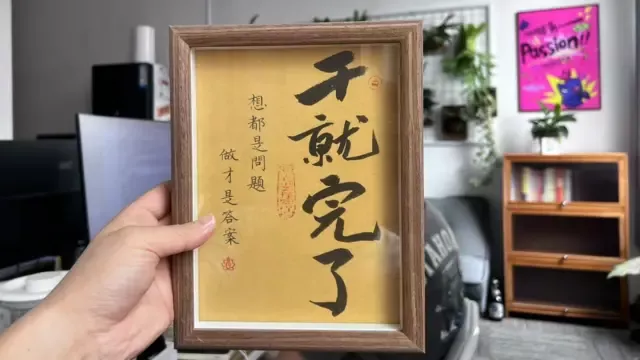 干就完了
想都是問題
做才是答案
Passion!!